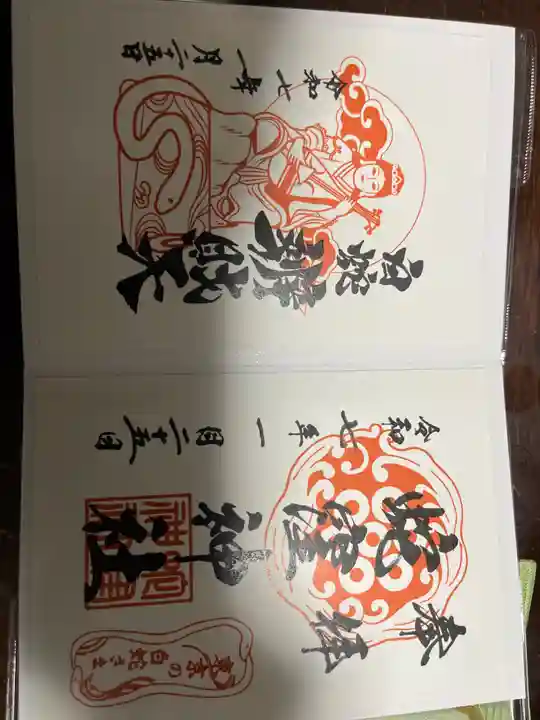 奉拝
東京の白蛇さま
蛇窪神社
蛇窪
神社
令和七年一月二十五日
白蛇辨財天
令和七年一月二十五日